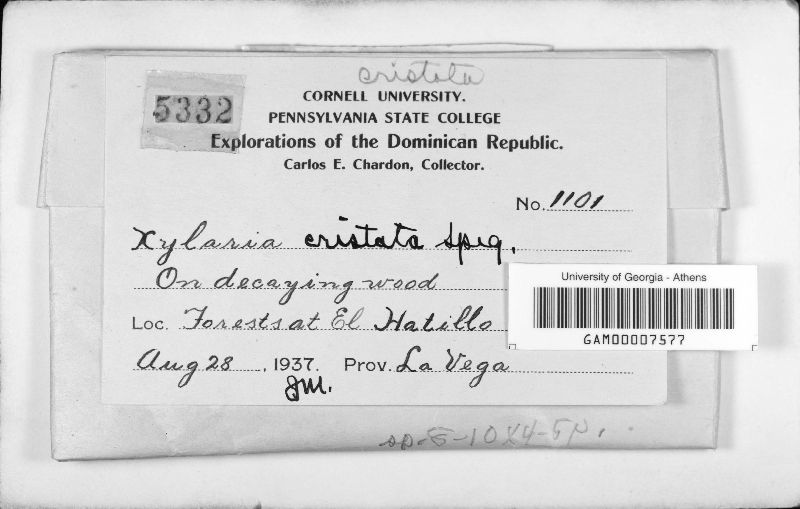 cristata
5332
CORNELL UNIVERSITY.
PENNSYLVANIA STATE COLLEGE
Explorations of the Dominican Republic.
Carlos E. Chardon, Collector.
No. 1101
Xylaria cristata Speg.
On decaying wood
Loc. Forests at El Hatillo
Aug 28, 1937. Prov. La Vega
JM.
University of Georgia - Athens
GAM00007577